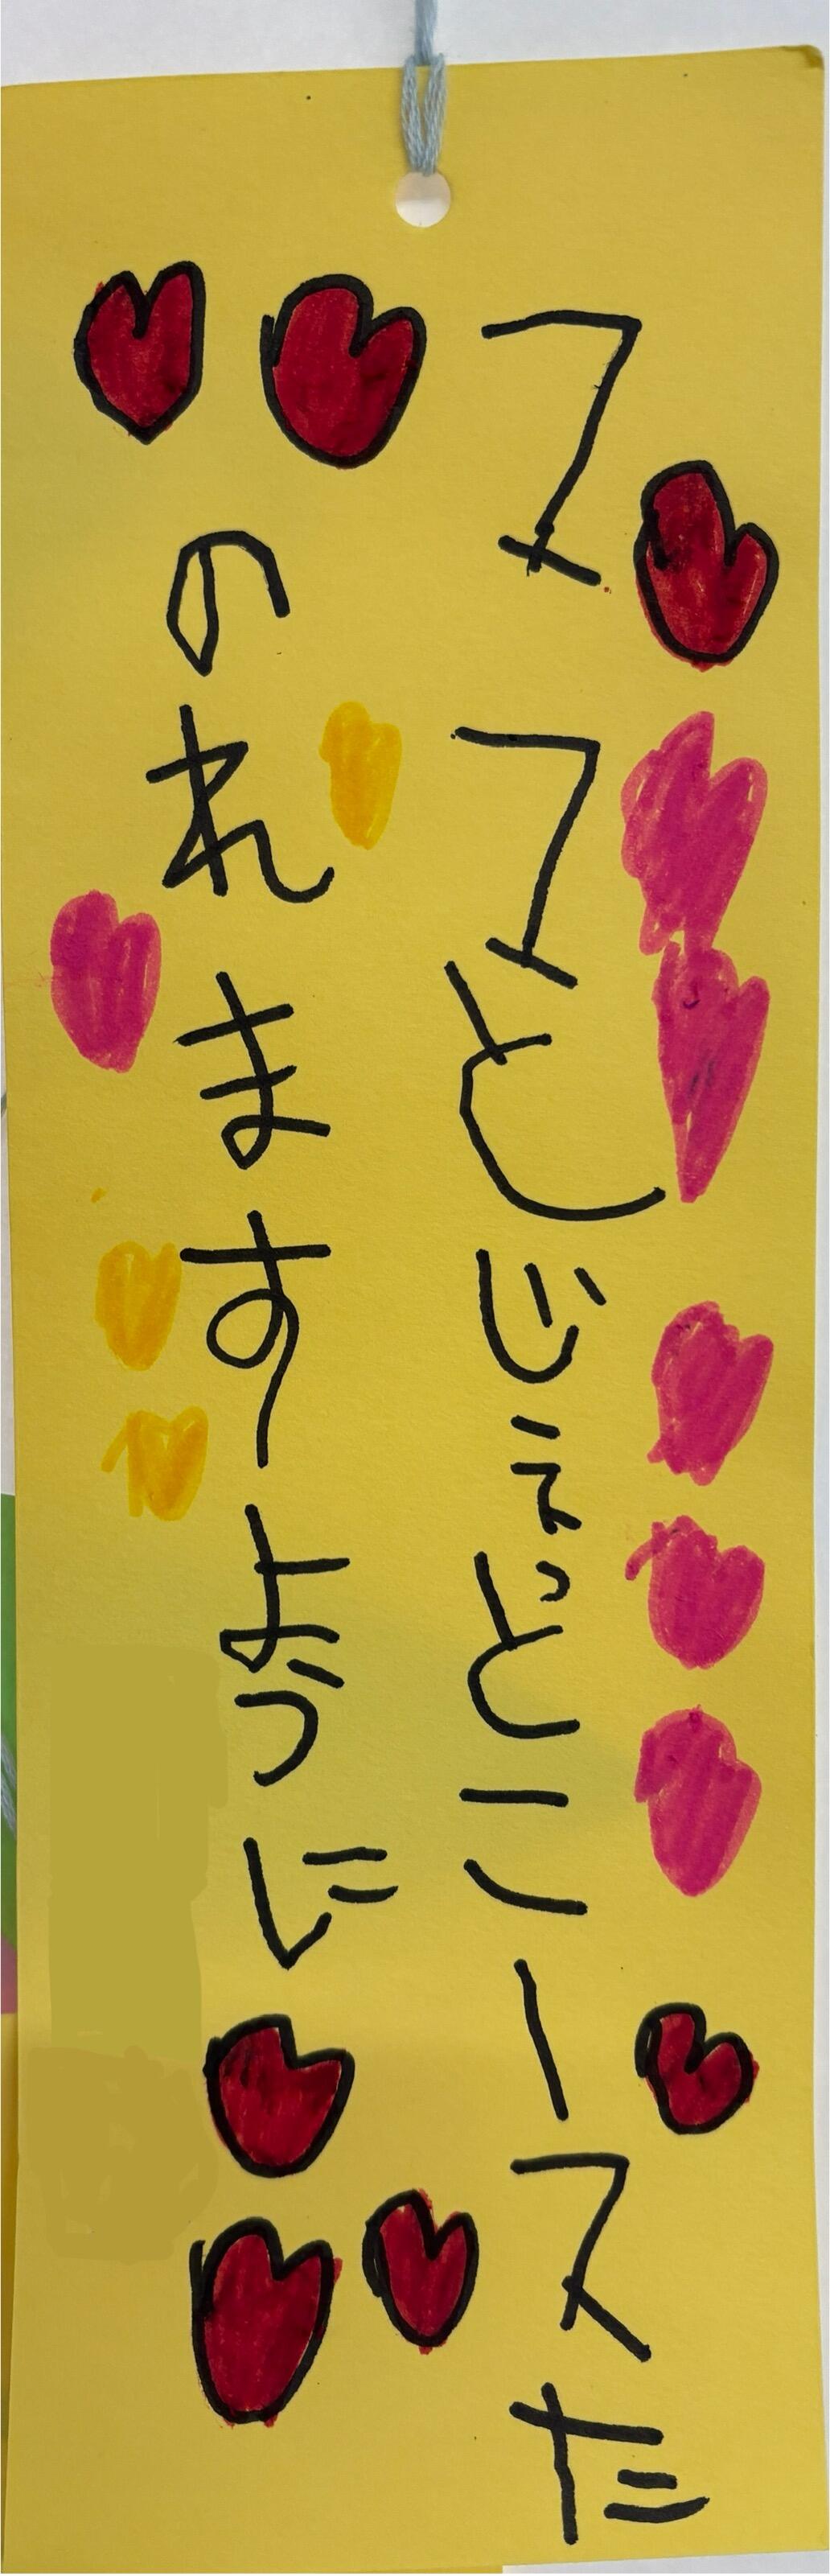 ママとじぇっとコースタ
のれますように